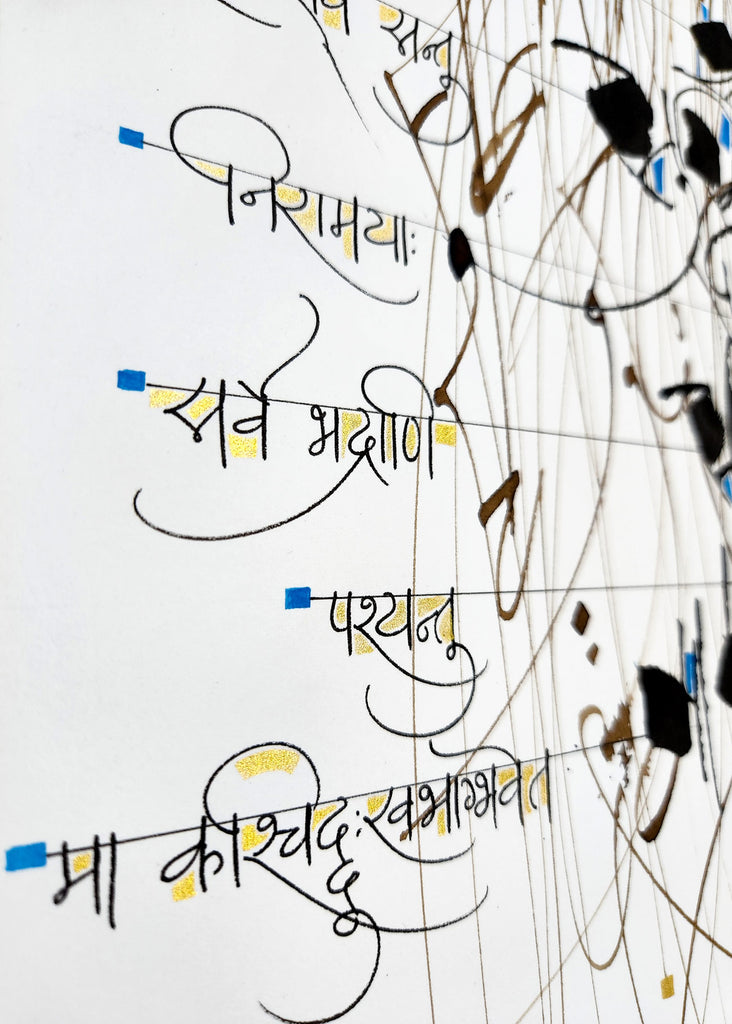 सन्तु
निरामयाः
सर्वे भद्राणि
पश्यन्तु
मा कश्चिद्दुःखभाग्भवेत